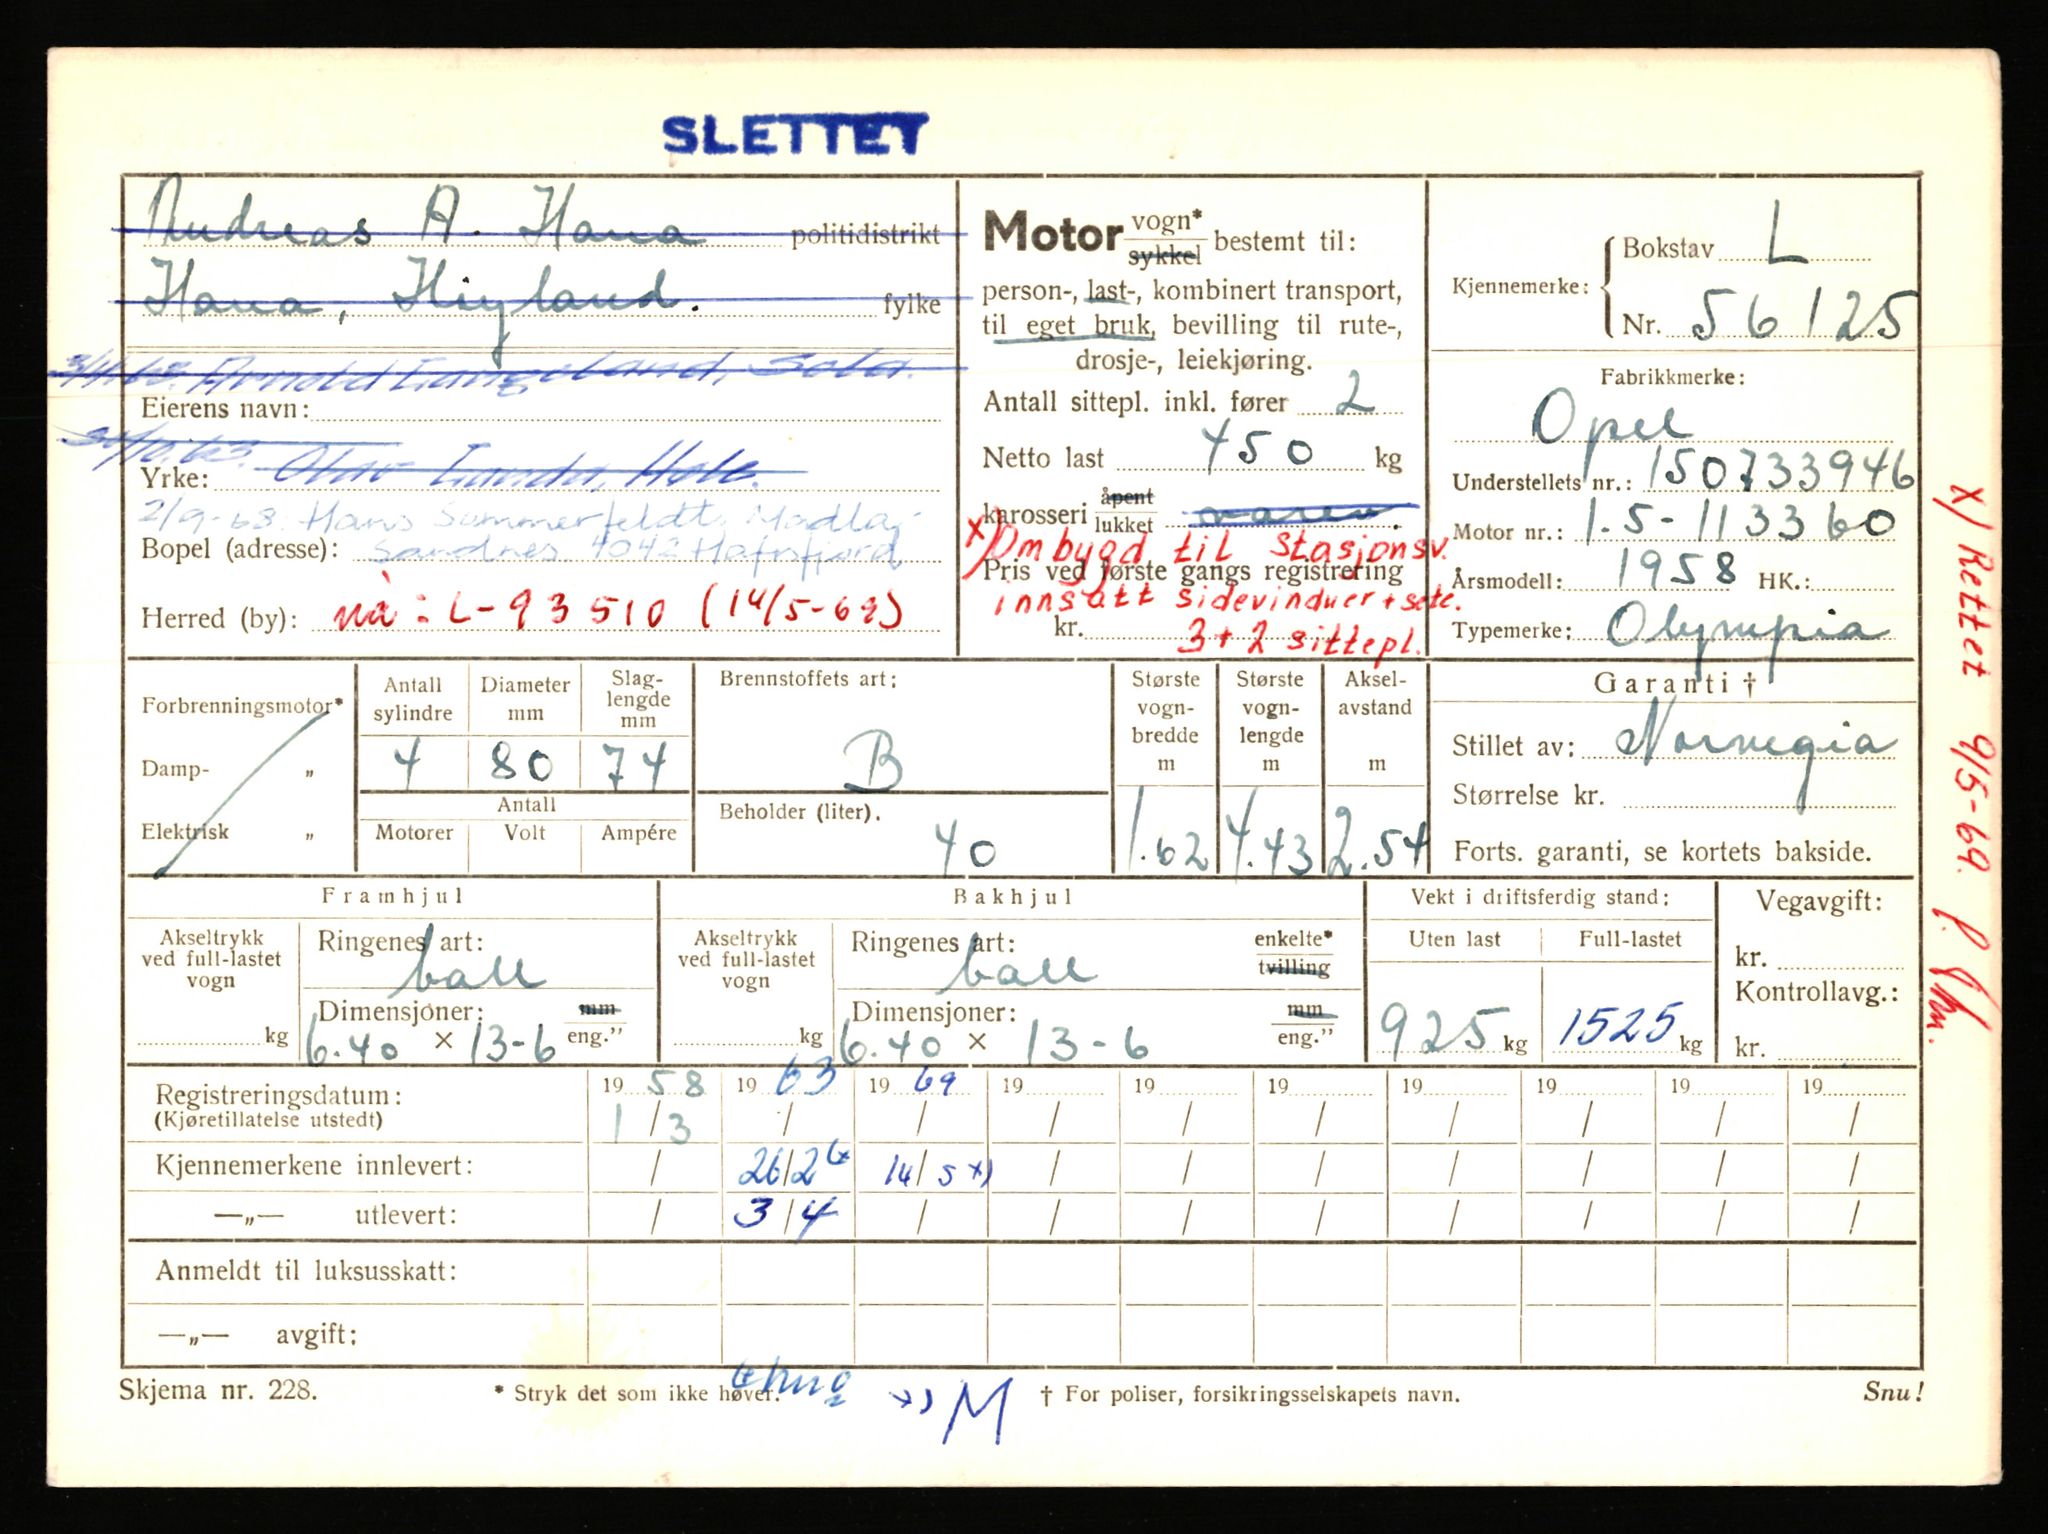 SLETTET
Andreas A. Hana politidistrikt
Hana, Høyland. fylke
Arnold Langeland, Sola.
Eierens navn:
Yrke:
2/9-68. Hans Sømmerfeldt, Madla,
Bopel (adresse): Sandnes 4042 Hafrsfjord
Herred (by): nå: L-93510 (14/5-69)
Motor vogn* sykkel bestemt til:
person-, last-, kombinert transport,
til eget bruk, bevilling til rute-,
drosje-, leiekjøring.
Antall sittepl. inkl. fører 2
Netto last 450 kg
karosseri åpent lukket varev.
X) Ombygd til Stasjonsv.
Pris ved første gangs registrering
innsatt sidevinduer + sete.
kr.
3+2 sittepl.
Kjennemerke: Bokstav L
Nr. 56125
Fabrikkmerke:
Opel
Understellets nr.: 150733946
Motor nr.: 1.5-113360
Årsmodell: 1958 HK.:
Typemerke: Olympia
X) Rettet 9/5-69.
Forbrenningsmotor*
Damp- „
Elektrisk „
Antall sylindre Diameter mm Slag-lengde mm
4 80 74
Antall
Motorer Volt Ampére
Brennstoffets art:
B
Beholder (liter).
40
Største vogn-bredde m
1.62
Største vogn-lengde m
4.43
Aksel-avstand m
2.54
Garanti †
Stillet av: Norvegia
Størrelse kr.
Forts. garanti, se kortets bakside.
Framhjul
Akseltrykk ved full-lastet vogn
kg
Ringenes art:
ball
Dimensjoner: mm
6.40 × 13-6 eng.”
Bakhjul
Akseltrykk ved full-lastet vogn
kg
Ringenes art: enkelte*
ball tvilling
Dimensjoner: mm
6.40 × 13-6 eng.”
Vekt i driftsferdig stand:
Uten last Full-lastet
925 kg 1525 kg
Vegavgift:
kr.
Kontrollavg.:
kr.
Registreringsdatum: 19 58 19 63 19 69 19 19 19 19 19 19 19
(Kjøretillatelse utstedt) 1/3 / / / / / / / / /
Kjennemerkene innlevert: / 26/2 14/5 x) / / / / / / /
—„— utlevert: / 3/4 / / / / / / / /
Anmeldt til luksusskatt:
—„— avgift:
Skjema nr. 228.
* Stryk det som ikke høver.
x) M
† For poliser, forsikringsselskapets navn.
Snu!